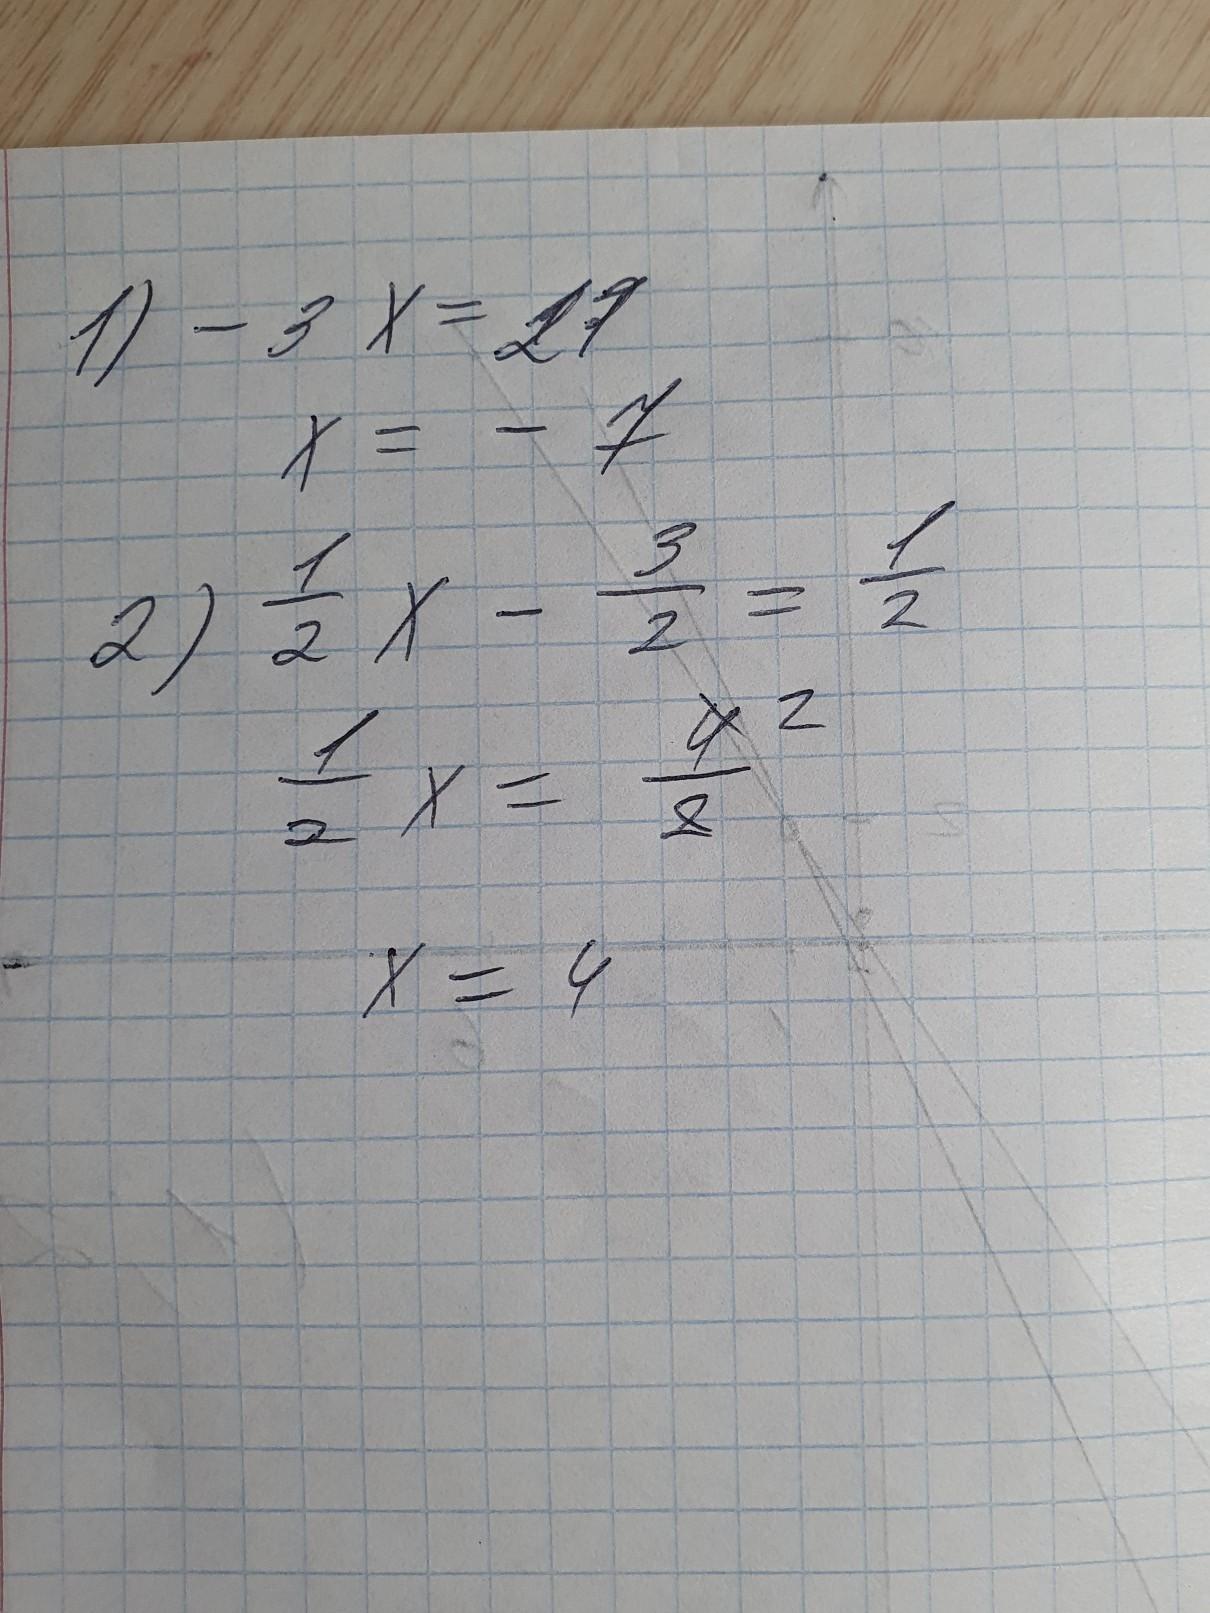 1) - 3 x = 27
x = - 7
2) 1/2 x - 3/2 = 1/2
1/2 x = 4/2 2
x = 4